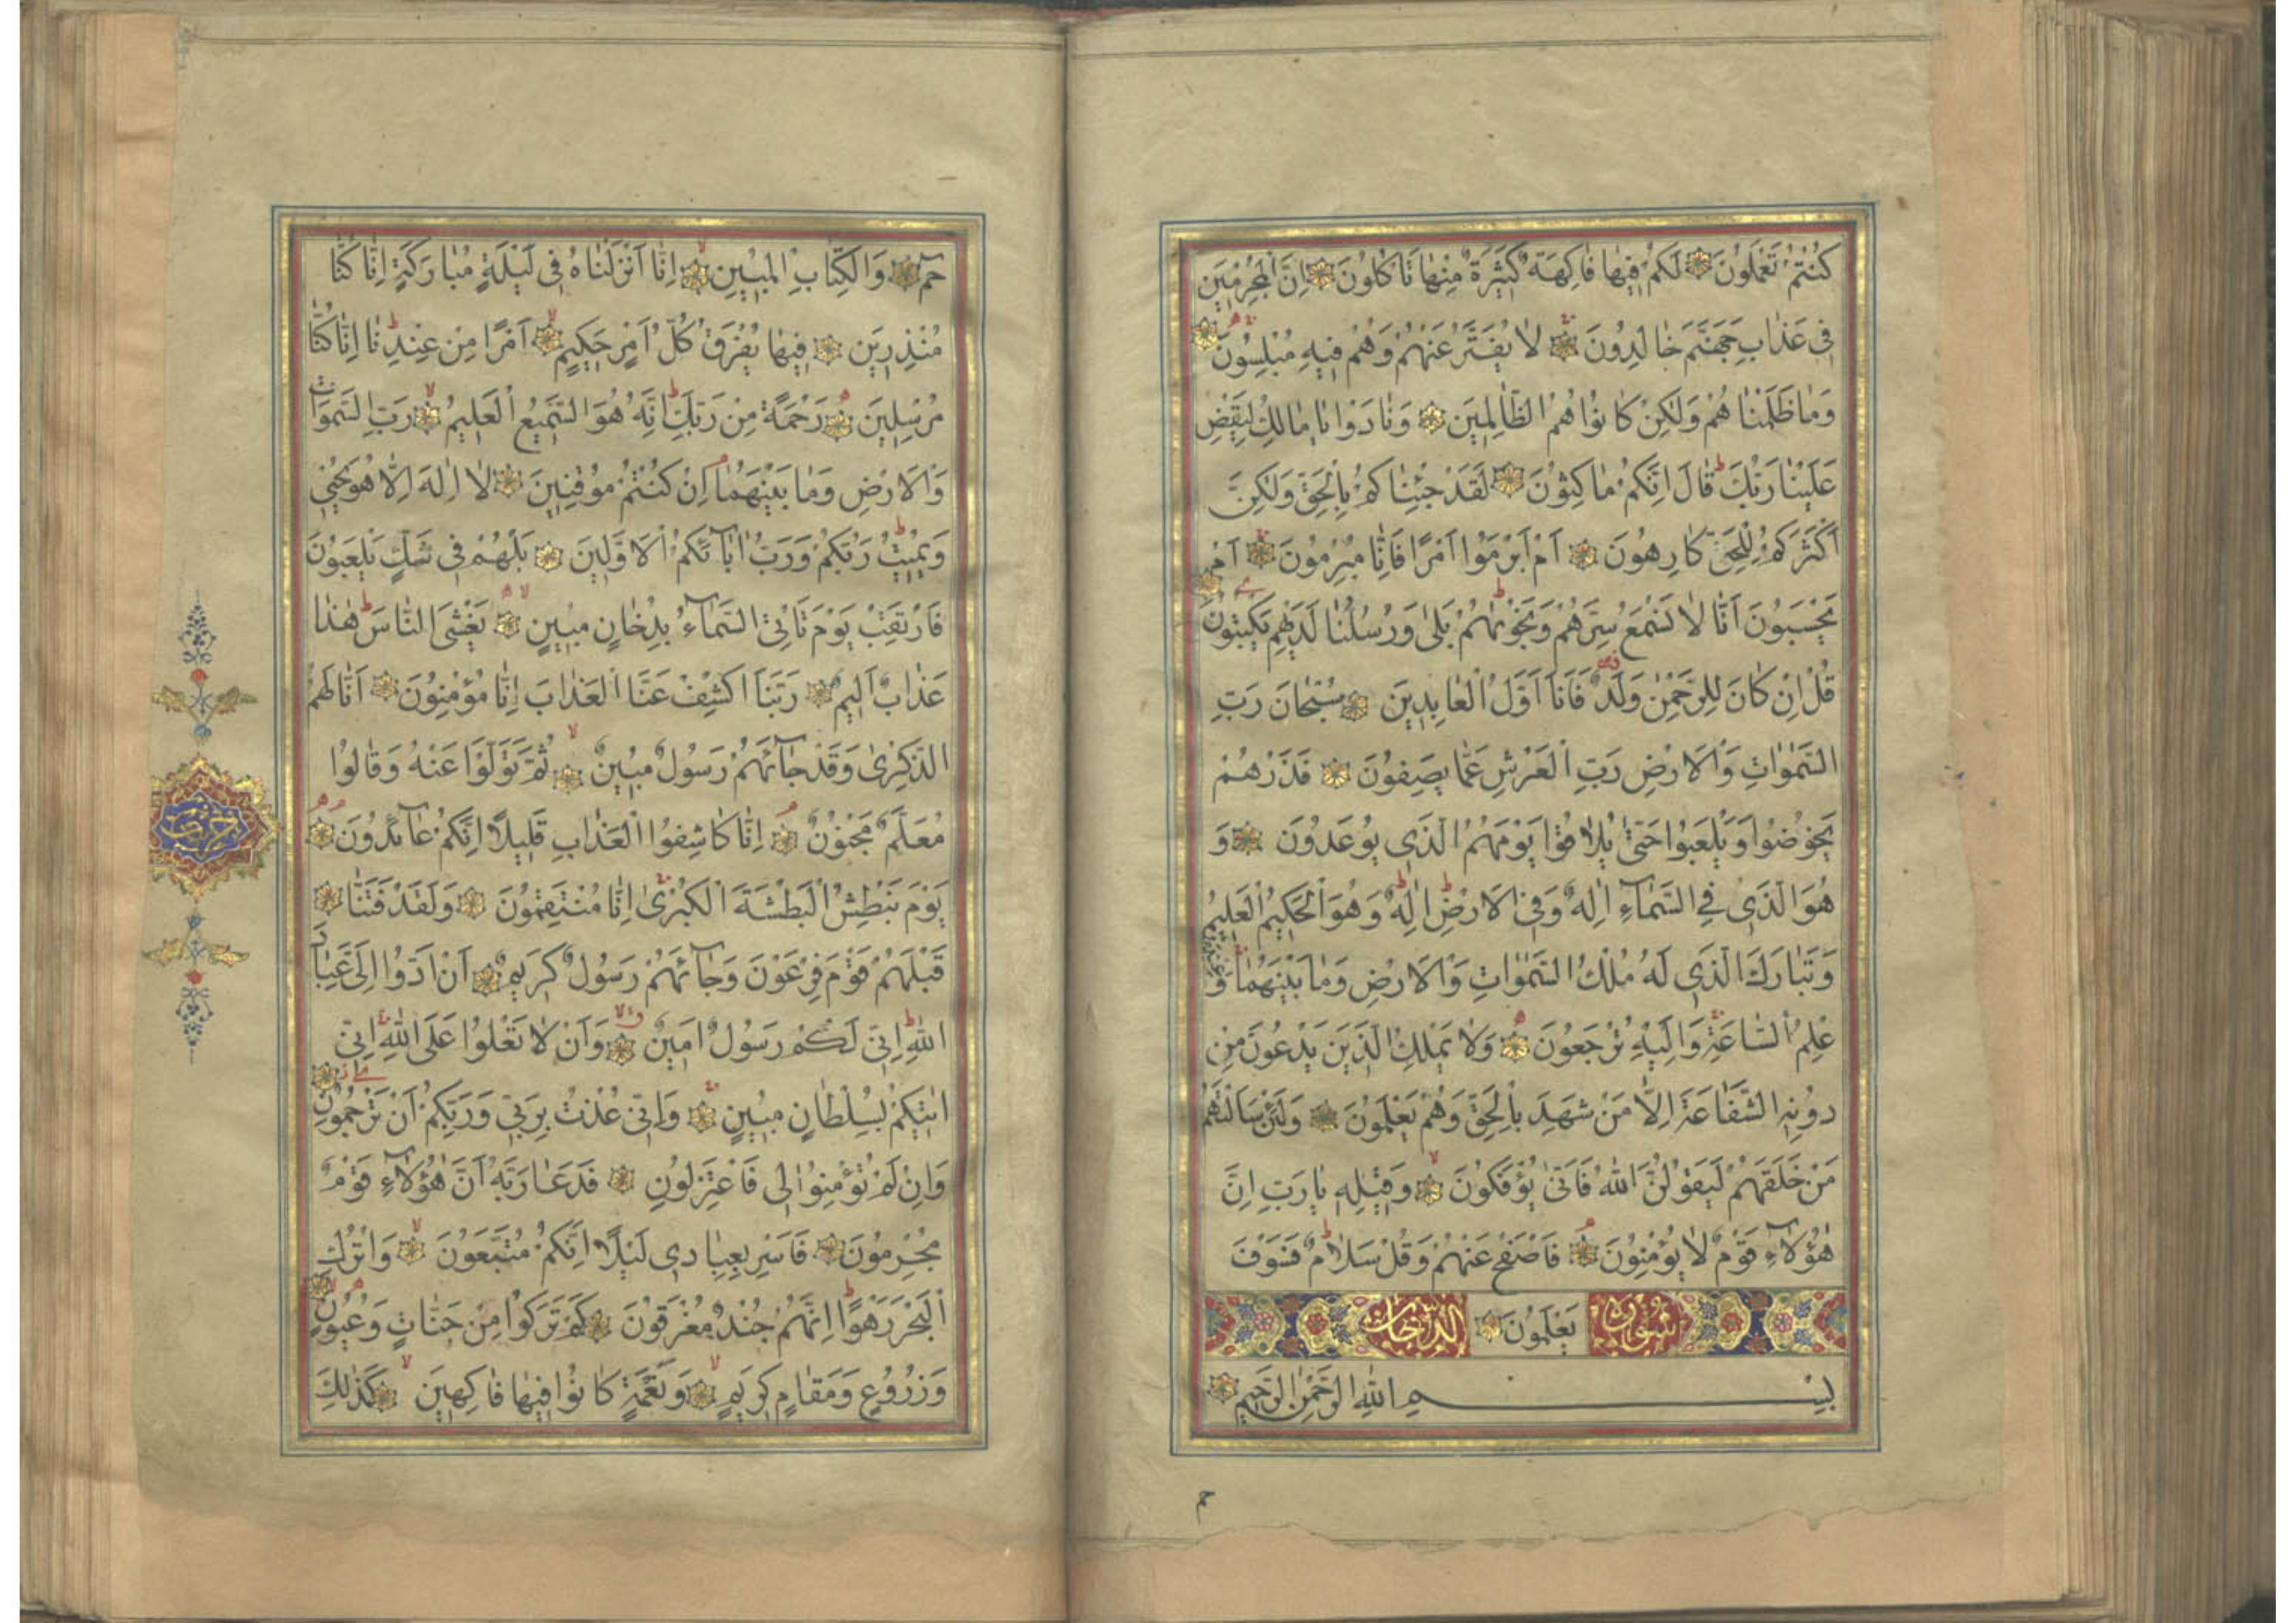 كُنْتُمْ تَعْمَلُونَ لَكُمْ فِيهَا فَاكِهَةٌ كَثِيرَةٌ مِنْهَا تَأْكُلُونَ اِنَّ الْمُجْرِمِينَ
فِى عَذَابِ جَهَنَّمَ خَالِدُونَ لَا يُفَتَّرُ عَنْهُمْ وَهُمْ فِيهِ مُبْلِسُونَ
وَمَا ظَلَمْنَاهُمْ وَلٰكِنْ كَانُوا هُمُ الظَّالِمِينَ وَنَادَوْا يَا مَالِكُ لِيَقْضِ
عَلَيْنَا رَبُّكَ قَالَ اِنَّكُمْ مَاكِثُونَ لَقَدْ جِئْنَاكُمْ بِالْحَقِّ وَلٰكِنَّ
اَكْثَرَكُمْ لِلْحَقِّ كَارِهُونَ اَمْ اَبْرَمُوا اَمْرًا فَاِنَّا مُبْرِمُونَ اَمْ
يَحْسَبُونَ اَنَّا لَا نَسْمَعُ سِرَّهُمْ وَنَجْوٰيهُمْ بَلٰى وَرُسُلُنَا لَدَيْهِمْ يَكْتُبُونَ
قُلْ اِنْ كَانَ لِلرَّحْمٰنِ وَلَدٌ فَاَنَا اَوَّلُ الْعَابِدِينَ سُبْحَانَ رَبِّ
السَّمٰوَاتِ وَالْاَرْضِ رَبِّ الْعَرْشِ عَمَّا يَصِفُونَ فَذَرْهُمْ
يَخُوضُوا وَيَلْعَبُوا حَتّٰى يُلَاقُوا يَوْمَهُمُ الَّذِى يُوعَدُونَ وَ
هُوَ الَّذِى فِى السَّمَآءِ اِلٰهٌ وَفِى الْاَرْضِ اِلٰهٌ وَهُوَ الْحَكِيمُ الْعَلِيمُ
وَتَبَارَكَ الَّذِى لَهُ مُلْكُ السَّمٰوَاتِ وَالْاَرْضِ وَمَا بَيْنَهُمَا وَعِنْدَهُ
عِلْمُ السَّاعَةِ وَاِلَيْهِ تُرْجَعُونَ وَلَا يَمْلِكُ الَّذِينَ يَدْعُونَ مِنْ
دُونِهِ الشَّفَاعَةَ اِلَّا مَنْ شَهِدَ بِالْحَقِّ وَهُمْ يَعْلَمُونَ وَلَئِنْ سَاَلْتَهُمْ
مَنْ خَلَقَهُمْ لَيَقُولُنَّ اللّٰهُ فَاَنّٰى يُؤْفَكُونَ وَقِيلِهِ يَا رَبِّ اِنَّ
هٰؤُلَآءِ قَوْمٌ لَا يُؤْمِنُونَ فَاصْفَحْ عَنْهُمْ وَقُلْ سَلَامٌ فَسَوْفَ
سُورَةُ يَعْلَمُونَ الدُّخَانِ
بِسْمِ اللّٰهِ الرَّحْمٰنِ الرَّحِيمِ
حم
حٰمٓ وَالْكِتَابِ الْمُبِينِ اِنَّا اَنْزَلْنَاهُ فِى لَيْلَةٍ مُبَارَكَةٍ اِنَّا كُنَّا
مُنْذِرِينَ فِيهَا يُفْرَقُ كُلُّ اَمْرٍ حَكِيمٍ اَمْرًا مِنْ عِنْدِنَا اِنَّا كُنَّا
مُرْسِلِينَ رَحْمَةً مِنْ رَبِّكَ اِنَّهُ هُوَ السَّمِيعُ الْعَلِيمُ رَبِّ السَّمٰوَاتِ
وَالْاَرْضِ وَمَا بَيْنَهُمَا اِنْ كُنْتُمْ مُوقِنِينَ لَا اِلٰهَ اِلَّا هُوَ يُحْيِى
وَيُمِيتُ رَبُّكُمْ وَرَبُّ اٰبَآئِكُمُ الْاَوَّلِينَ بَلْ هُمْ فِى شَكٍّ يَلْعَبُونَ
فَارْتَقِبْ يَوْمَ تَاْتِى السَّمَآءُ بِدُخَانٍ مُبِينٍ يَغْشَى النَّاسَ هٰذَا
عَذَابٌ اَلِيمٌ رَبَّنَا اكْشِفْ عَنَّا الْعَذَابَ اِنَّا مُؤْمِنُونَ اَنّٰى لَهُمُ
الذِّكْرٰى وَقَدْ جَآئَهُمْ رَسُولٌ مُبِينٌ ثُمَّ تَوَلَّوْا عَنْهُ وَقَالُوا
مُعَلَّمٌ مَجْنُونٌ اِنَّا كَاشِفُوا الْعَذَابِ قَلِيلًا اِنَّكُمْ عَآئِدُونَ
يَوْمَ نَبْطِشُ الْبَطْشَةَ الْكُبْرٰى اِنَّا مُنْتَقِمُونَ وَلَقَدْ فَتَنَّا
قَبْلَهُمْ قَوْمَ فِرْعَوْنَ وَجَآئَهُمْ رَسُولٌ كَرِيمٌ اَنْ اَدُّوا اِلَىَّ عِبَادَ
اللّٰهِ اِنِّى لَكُمْ رَسُولٌ اَمِينٌ وَاَنْ لَا تَعْلُوا عَلَى اللّٰهِ اِنِّى
اٰتِيكُمْ بِسُلْطَانٍ مُبِينٍ وَاِنِّى عُذْتُ بِرَبِّى وَرَبِّكُمْ اَنْ تَرْجُمُونِ
وَاِنْ لَمْ تُؤْمِنُوا لِى فَاعْتَزِلُونِ فَدَعَا رَبَّهُ اَنَّ هٰؤُلَآءِ قَوْمٌ
مُجْرِمُونَ فَاَسْرِ بِعِبَادِى لَيْلًا اِنَّكُمْ مُتَّبَعُونَ وَاتْرُكِ
الْبَحْرَ رَهْوًا اِنَّهُمْ جُنْدٌ مُغْرَقُونَ كَمْ تَرَكُوا مِنْ جَنَّاتٍ وَعُيُونٍ
وَزُرُوعٍ وَمَقَامٍ كَرِيمٍ وَنَعْمَةٍ كَانُوا فِيهَا فَاكِهِينَ كَذٰلِكَ